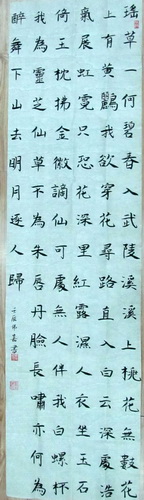 瑤草一何碧春入武陵溪溪上桃花無數花
上有黃鸝我欲穿花尋路直入白云深處浩
氣展虹霓只恐花深里紅露濕人衣坐玉石
倚玉枕拂金徽謫仙何處無人伴我白螺杯
我為靈芝仙草不為朱唇丹臉長嘯亦何為
醉舞下山去明月逐人歸